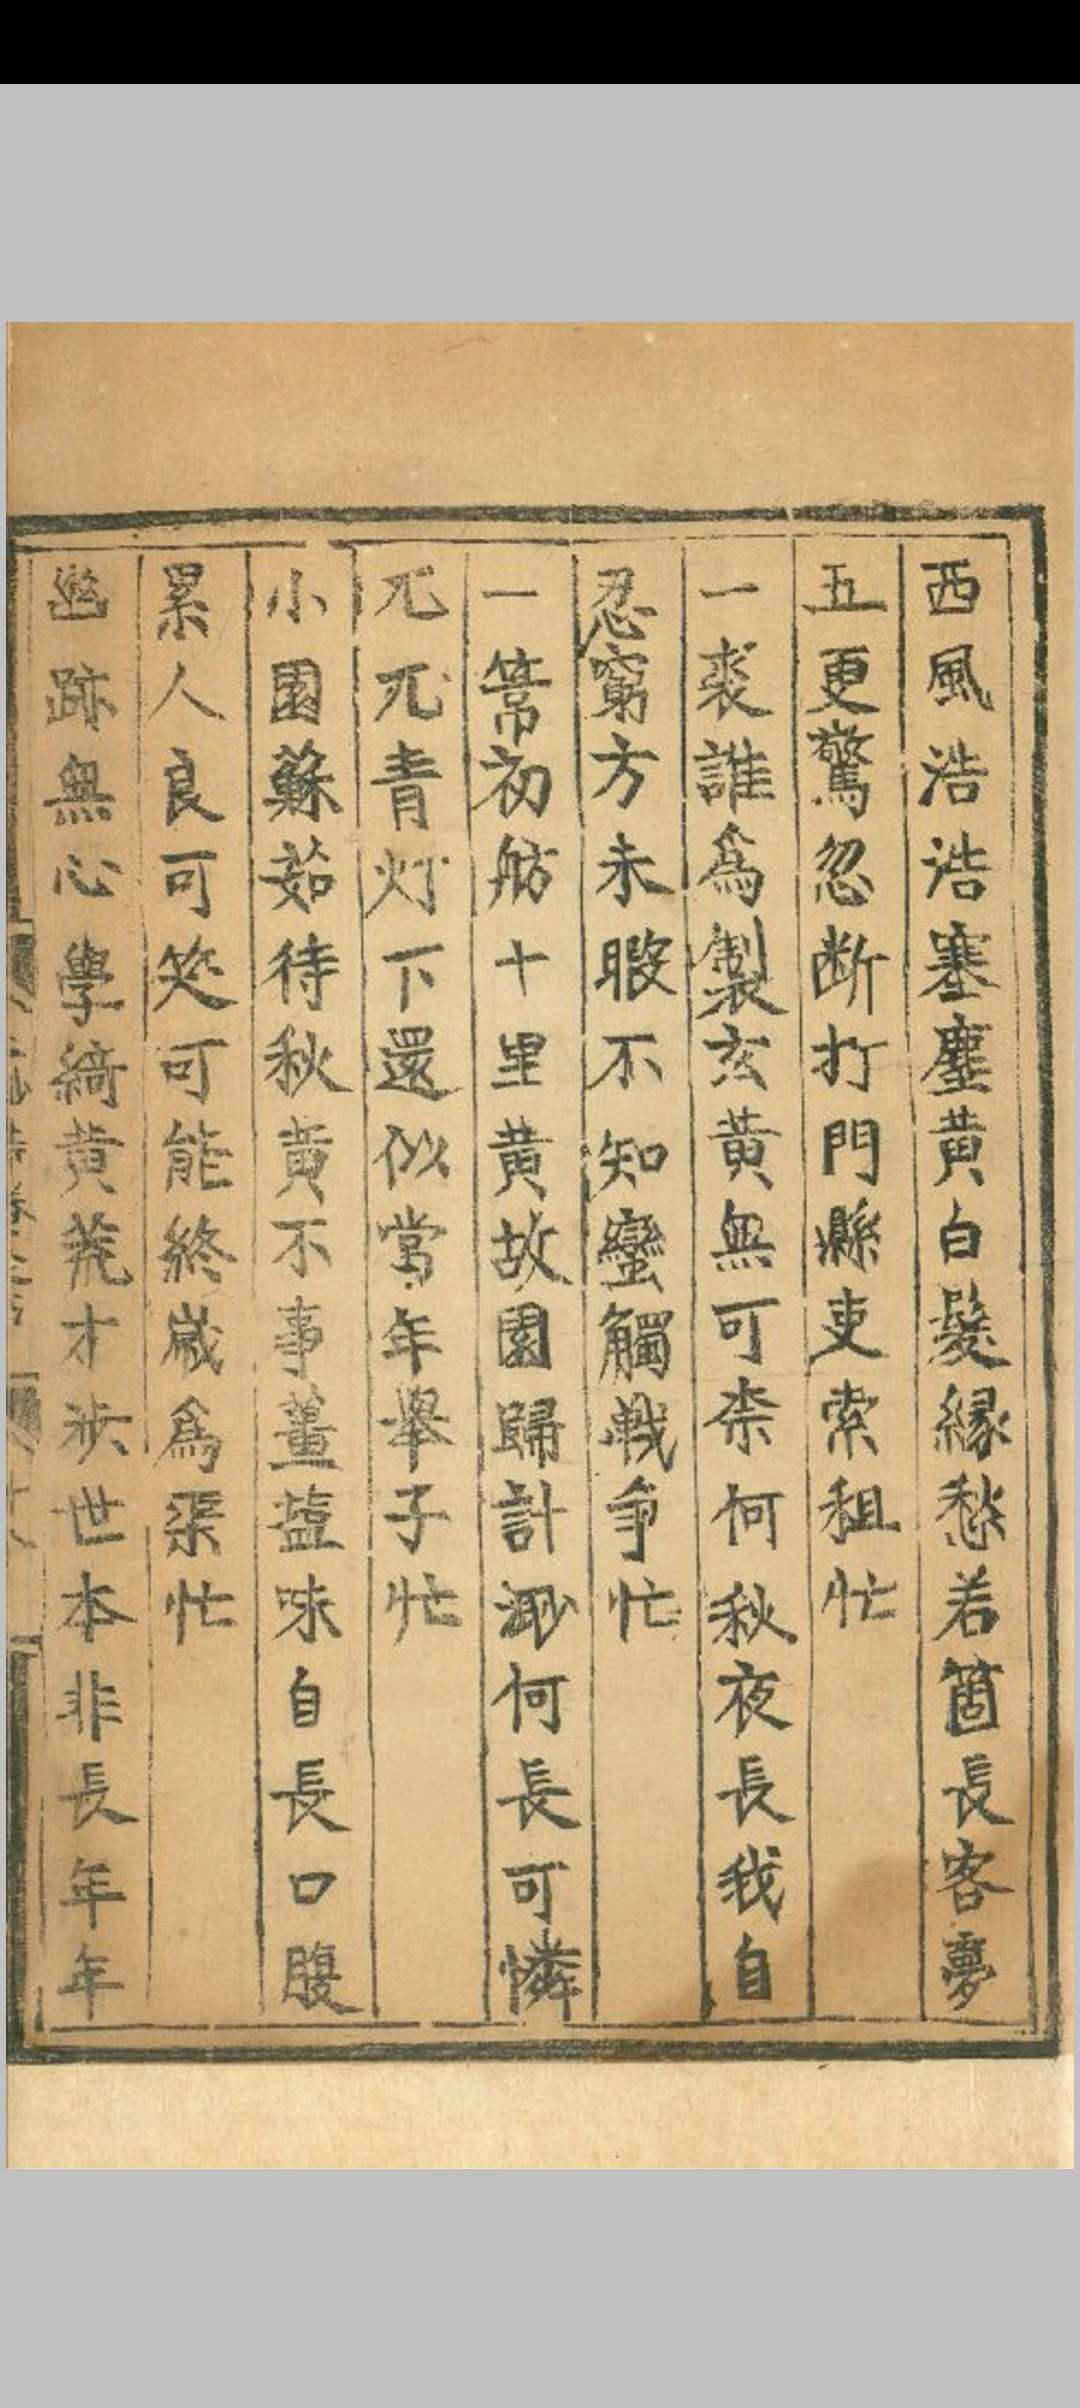 西風浩浩塞塵黄白髮緣愁若箇長客夢
五更驚忽断打門縣吏索租忙
一裘誰為製玄黄無可柰何秋夜長我自
忍窮方未暇不知蠻觸戦争忙
一篙初舫十里黄故園歸計渺何長可憐
兀兀青灯下還似常年舉子忙
小園蘇茹待秋黄不事薑盐味自長口腹
累人良可笑可能終歲為渠忙
跡無心學綺黄荒才涉世本非長年年